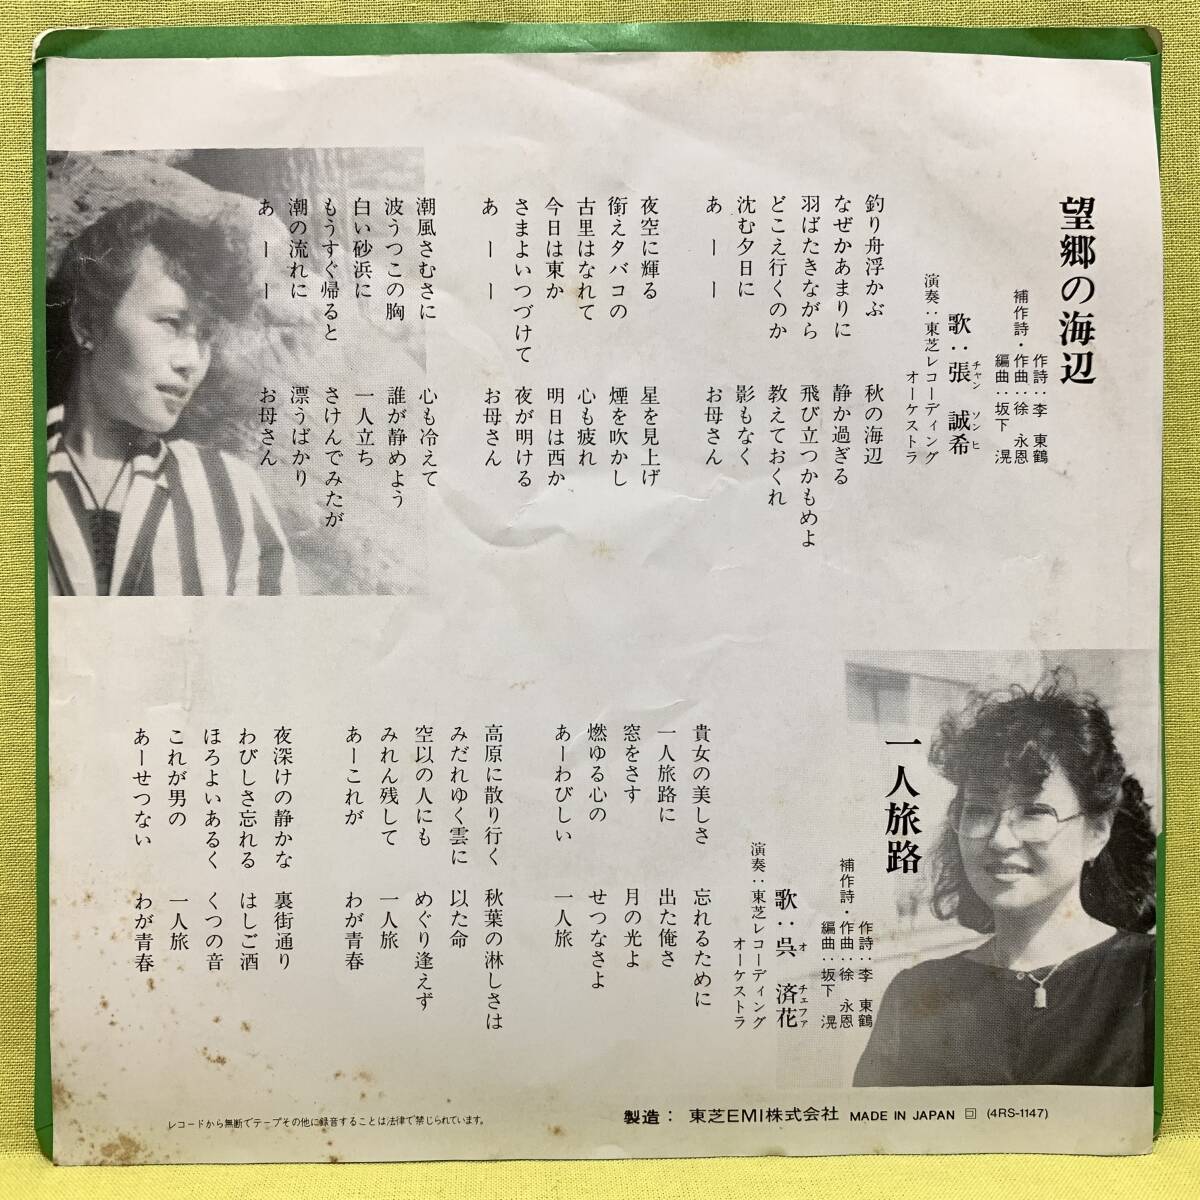 望郷の海辺
作詩：李　東鶴
補作詩・作曲：徐　永恩
編曲：坂下　滉
歌：張　誠希
チャン　ソンヒ
演奏：東芝レコーディング
オーケストラ
釣り舟浮かぶ　秋の海辺
なぜかあまりに　静か過ぎる
羽ばたきながら　飛び立つかもめよ
どこえ行くのか　教えておくれ
沈む夕日に　影もなく
あーー　お母さん
夜空に輝る　星を見上げ
銜え夕バコの　煙を吹かし
古里はなれて　心も疲れ
今日は東か　明日は西か
さまよいつづけて　夜が明ける
あーー　お母さん
潮風さむさに　心も冷えて
波うつこの胸　誰が静めよう
白い砂浜に　一人立ち
もうすぐ帰ると　さけんでみたが
潮の流れに　漂うばかり
あーー　お母さん
一人旅路
作詩：李　東鶴
補作詩・作曲：徐　永恩
編曲：坂下　滉
歌：呉　済花
オ　チェファ
演奏：東芝レコーディング
オーケストラ
貴女の美しさ　忘れるために
一人旅路に　出た俺さ
窓をさす　月の光よ
燃ゆる心の　せつなさよ
あーわびしい　一人旅
高原に散り行く　秋葉の淋しさは
みだれゆく雲に　以た命
空以の人にも　めぐり逢えず
みれん残して　一人旅
あーこれが　わが青春
夜深けの静かな　裏街通り
わびしさ忘れる　はしご酒
ほろよいあるく　くつの音
これが男の　一人旅
あーせつない　わが青春
レコードから無断でテープその他に録音することは法律で禁じられています。
製造：東芝EMI株式会社　MADE IN JAPAN　(4RS-1147)